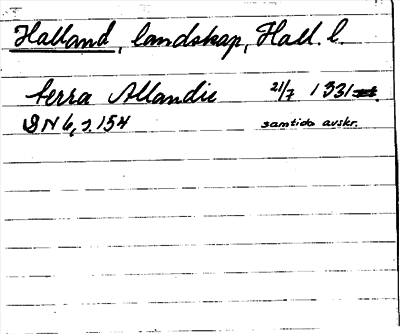 Halland, landskap, Hall. l.
terra Allandie 21/7 1331
DN 6, s. 154 samtida avskr.